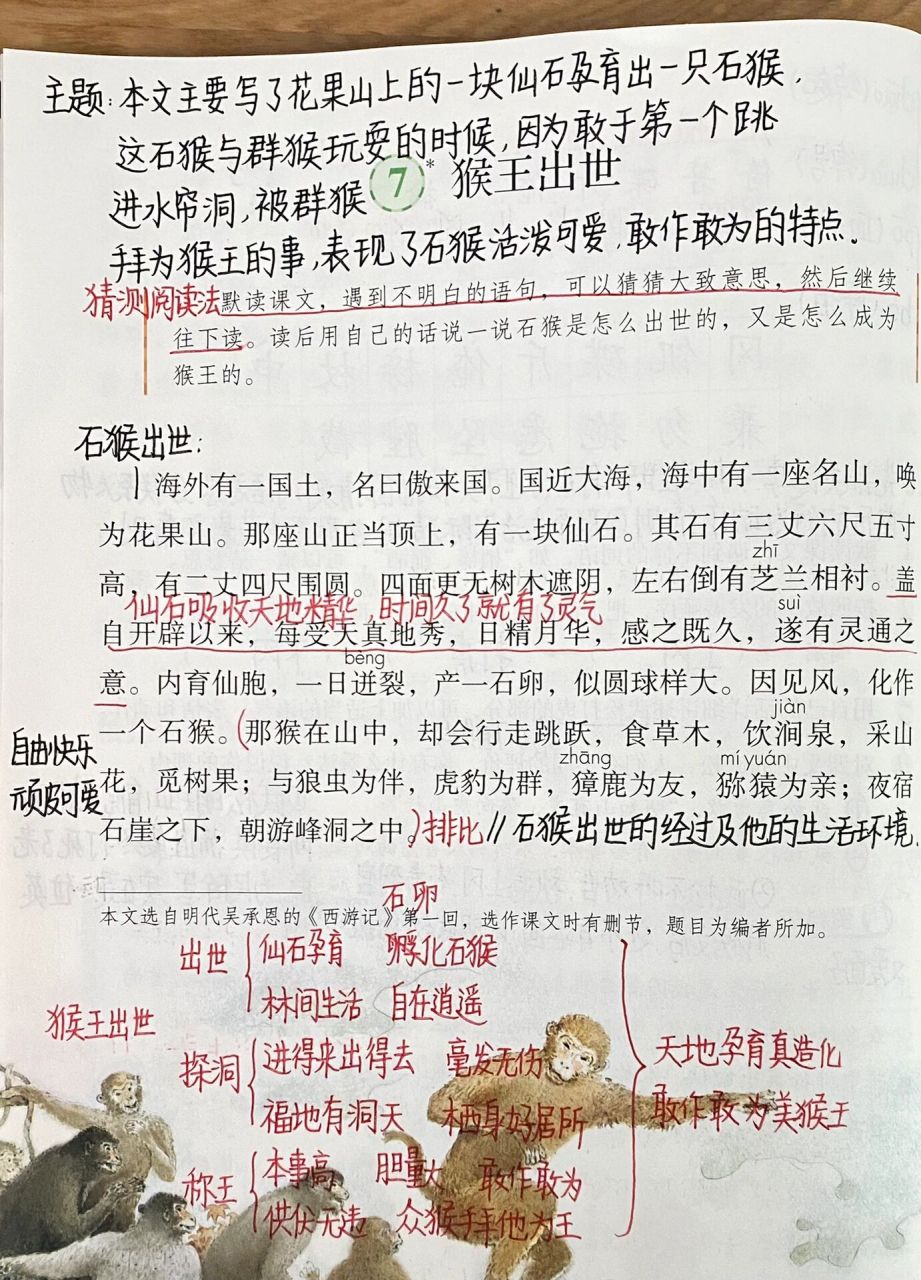 主题:本文主要写了花果山上的一块仙石孕育出一只石猴,
这石猴与群猴玩耍的时候,因为敢于第一个跳
进水帘洞,被群猴
7* 猴王出世
拜为猴王的事,表现了石猴活泼可爱,敢作敢为的特点.
猜测阅读法 默读课文,遇到不明白的语句,可以猜猜大致意思,然后继续
往下读。读后用自己的话说一说石猴是怎么出世的,又是怎么成为
猴王的。
石猴出世:
海外有一国土,名曰傲来国。国近大海,海中有一座名山,唤
为花果山。那座山正当顶上,有一块仙石。其石有三丈六尺五寸
zhī
高,有二丈四尺围圆。四面更无树木遮阴,左右倒有芝兰相衬。盖
仙石吸收天地精华,时间久了就有了灵气
suì
自开辟以来,每受天真地秀,日精月华,感之既久,遂有灵通之
bèng
意。内育仙胞,一日迸裂,产一石卵,似圆球样大。因见风,化作
jiàn
一个石猴。(那猴在山中,却会行走跳跃,食草木,饮涧泉,采山
自由快乐
顽皮可爱
zhāng mí yuán
花,觅树果;与狼虫为伴,虎豹为群,獐鹿为友,猕猿为亲;夜宿
石崖之下,朝游峰洞之中。)排比//石猴出世的经过及他的生活环境.
石卵
本文选自明代吴承恩的《西游记》第一回,选作课文时有删节,题目为编者所加。
猴王出世
出世 仙石孕育 孵化石猴
林间生活 自在逍遥
探洞 进得来出得去 毫发无伤
福地有洞天 栖身好居所
称王 本事高 胆量大 敢作敢为
供伏无违 众猴拜他为王
天地孕育真造化
敢作敢为美猴王